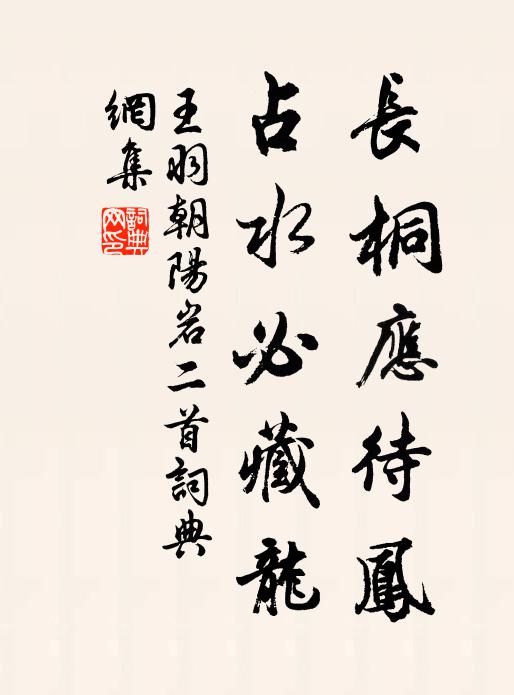 長桐應待鳳
占水必藏龍
王羽朝陽岩二首詞典
網集
詞典
网印